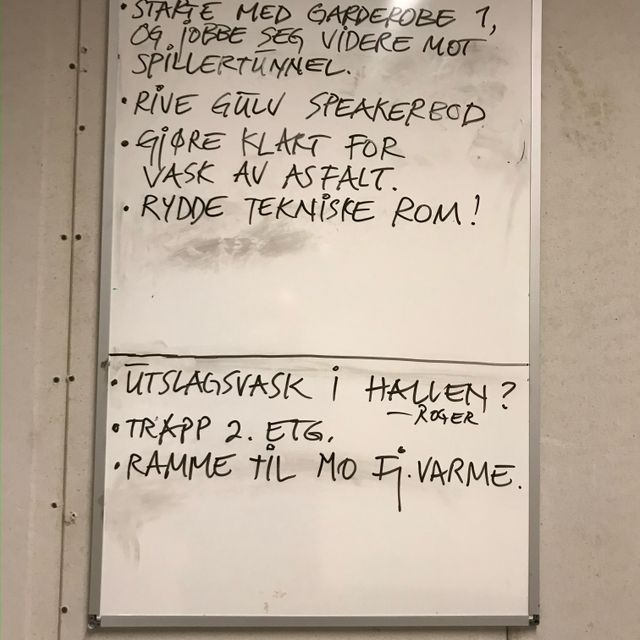 • STARTE MED GARDEROBE 1,
OG JOBBE SEG VIDERE MOT
SPILLERTUNNEL.
• RIVE GULV SPEAKERBOD
• GJØRE KLART FOR
VASK AV ASFALT.
• RYDDE TEKNISKE ROM!
• UTSLAGSVASK I HALLEN?
– ROGER
• TRAPP 2. ETG.
• RAMME TIL MO FJ.VARME.